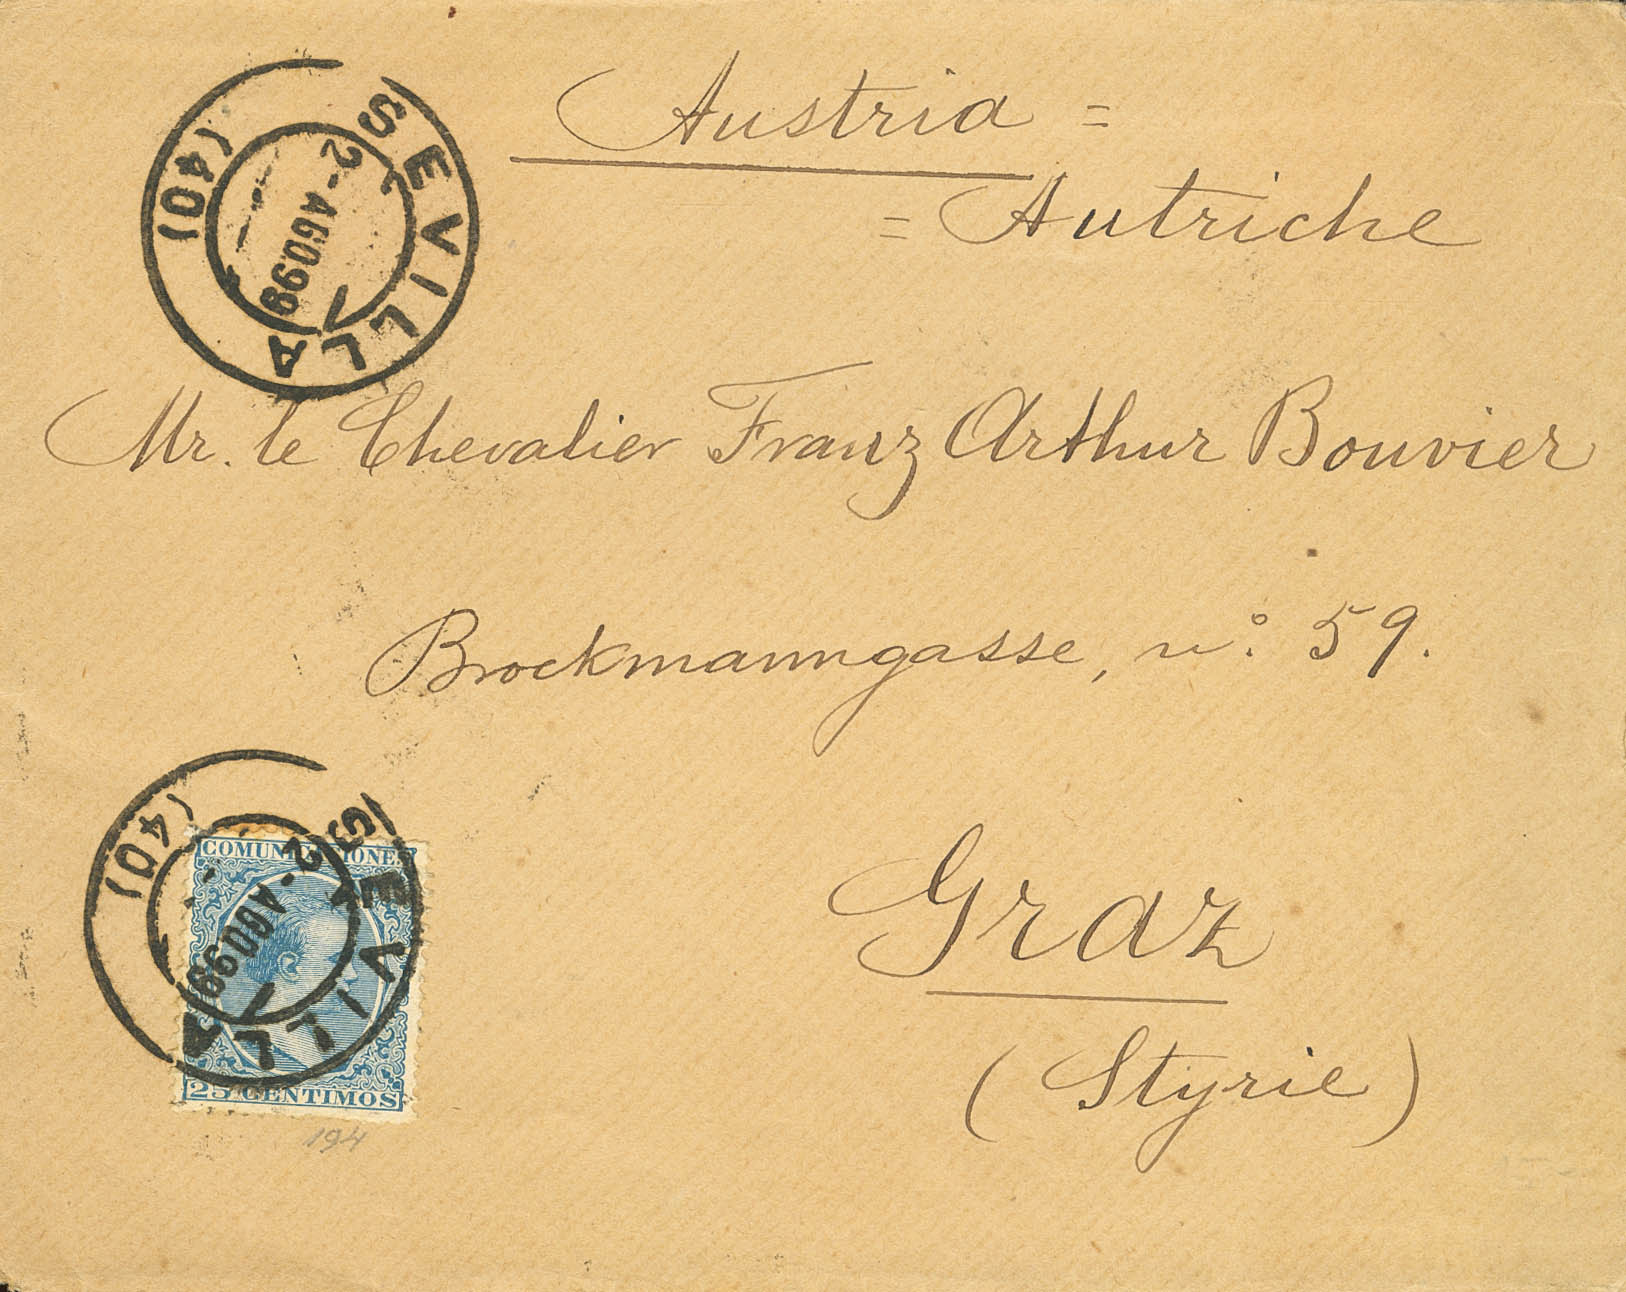 Austria =
= Autriche
SEVILLA
2-AGO.99
(40)
Mr. le Chevalier Franz Arthur Bouvier
Brockmanngasse, nº 59.
Graz
(Styrie)
SEVILLA
2-AGO.99
(40)
COMUNICACIONES
25 CENTIMOS
194